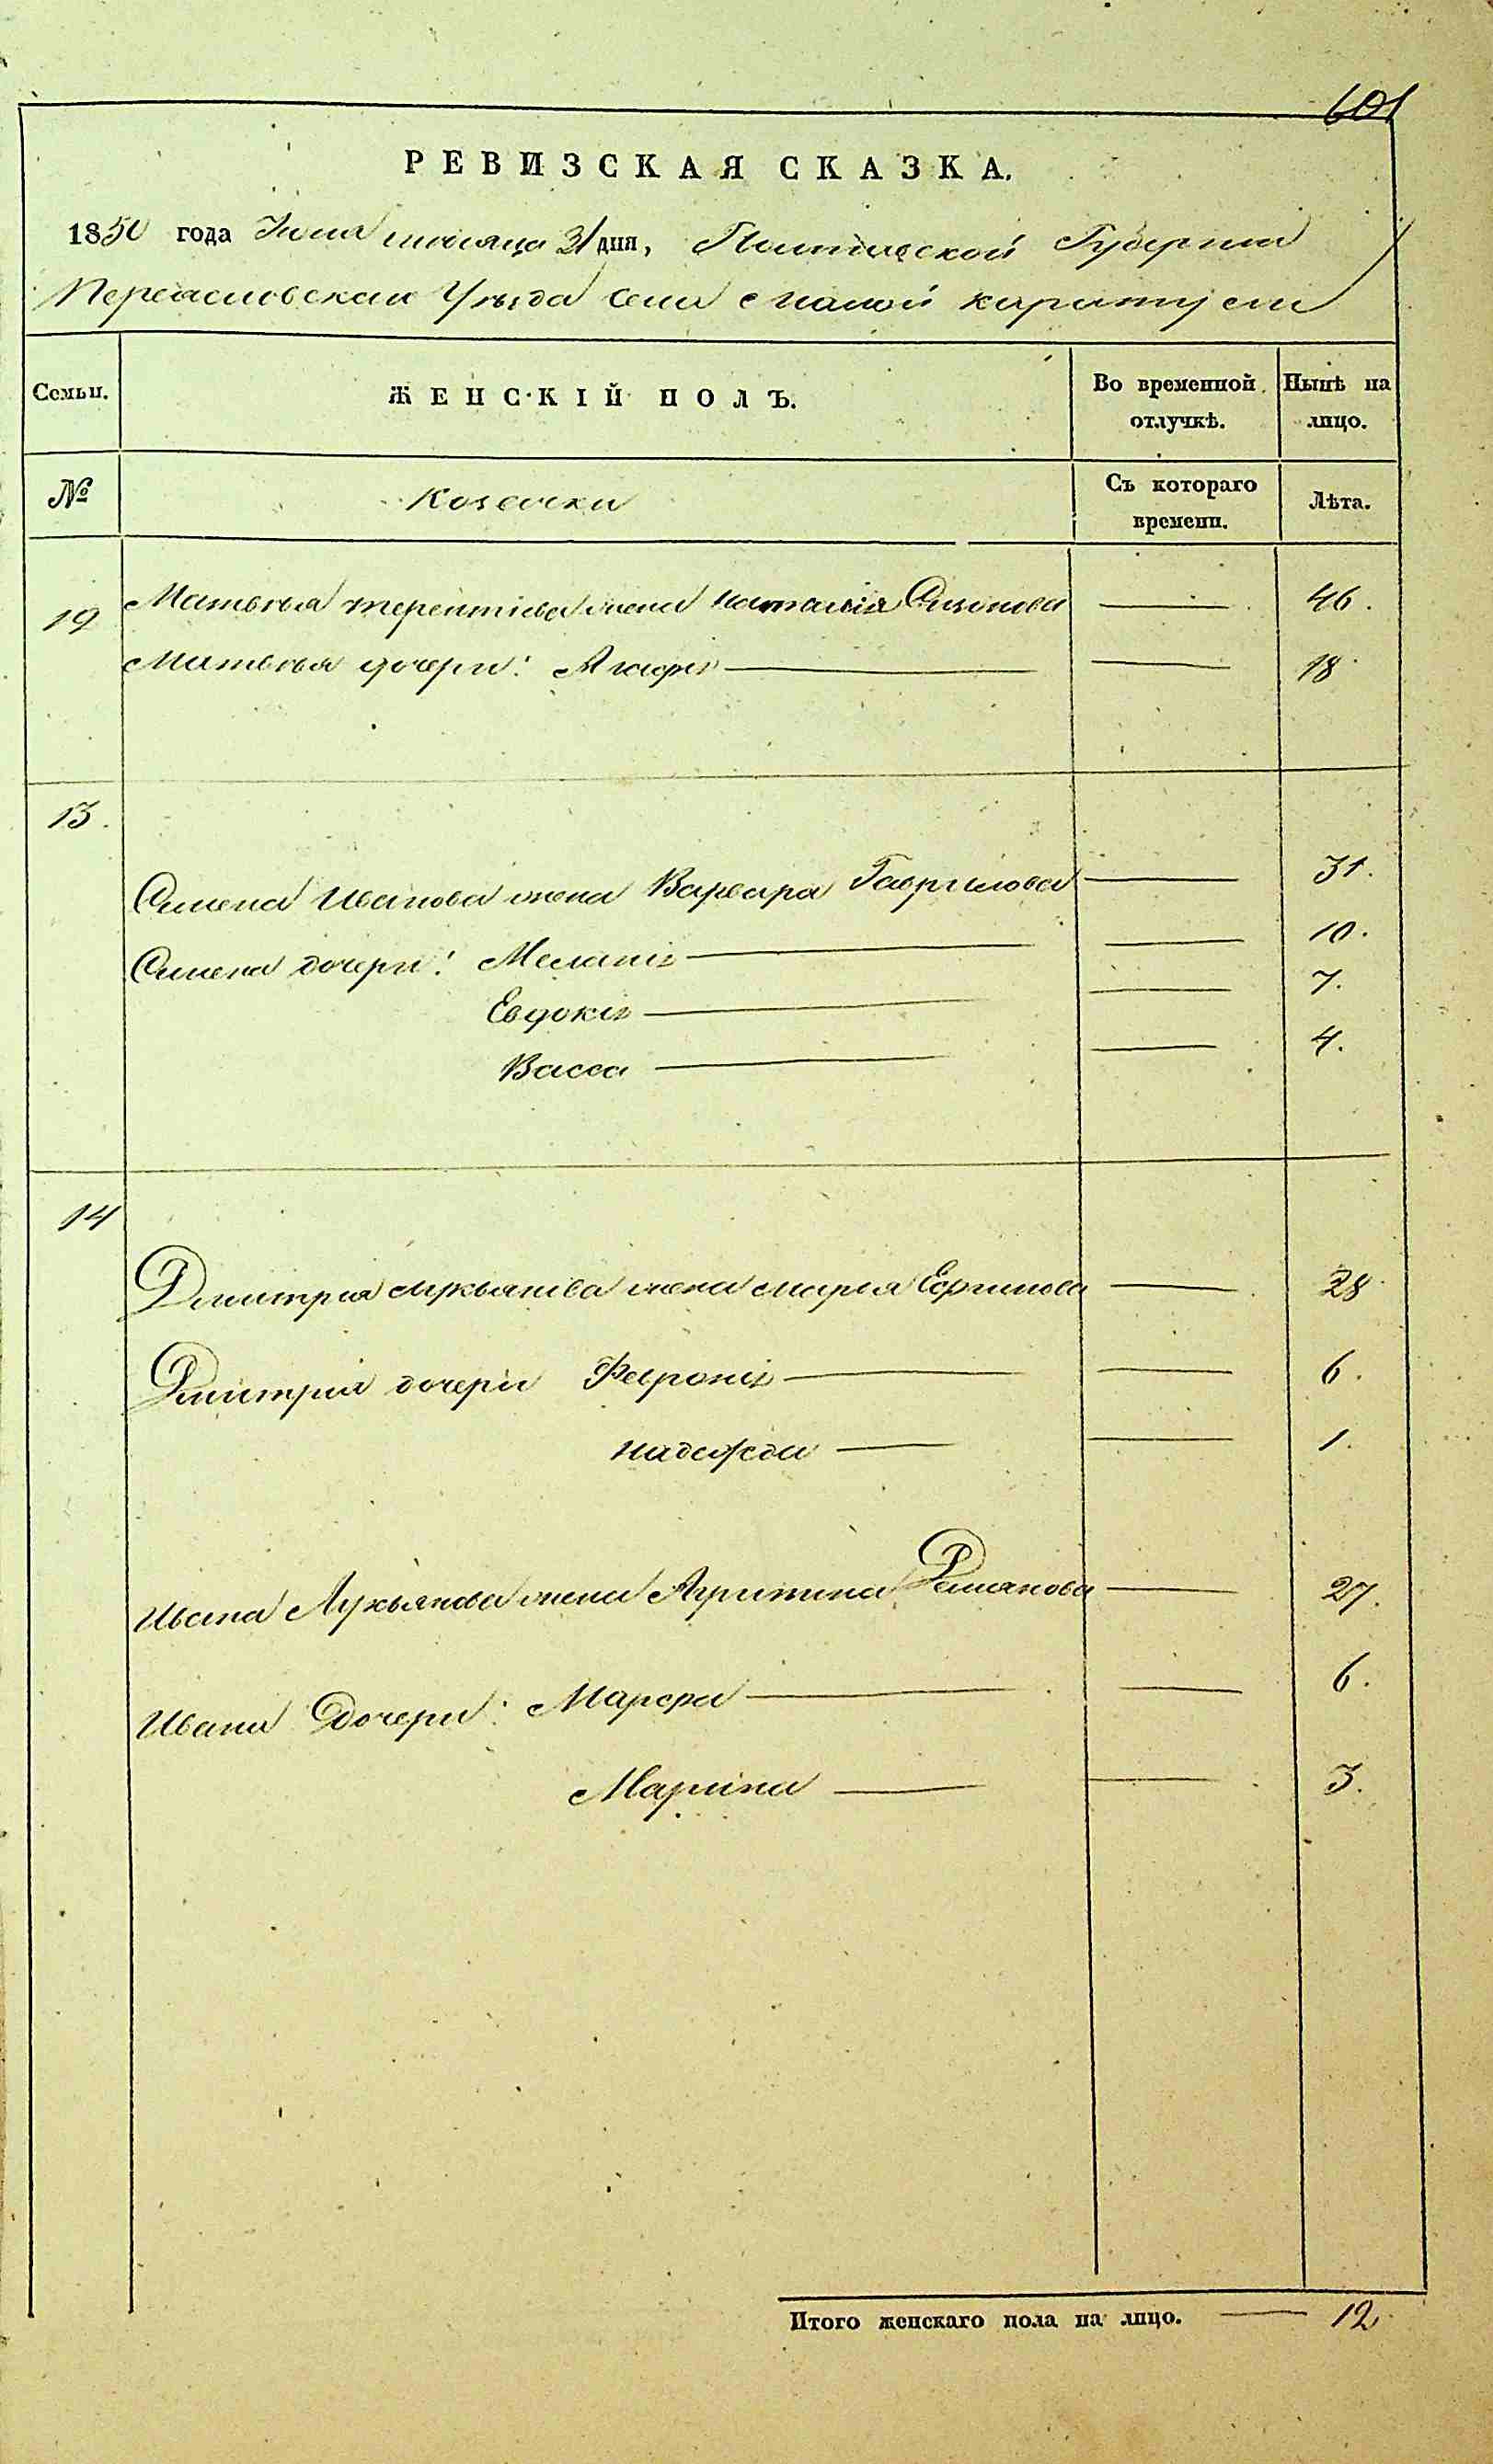 601
РЕВИЗСКАЯ СКАЗКА.
1850 года Июля месяца 31 дня, Полтавской Губернии
Переасловскаи Уѣзда Села малой каратули
Семьи.
ЖЕНСКІЙ ПОЛЪ.
Во временной отлучкѣ.
Нынѣ на лицо.
№
Козачки
Съ котораго времени.
Лѣта.
12 Матвѣя терентіева жена наталія Симонова — 46.
Матвѣя дочери: Агафія — 18
13.
Симена Иванова жена Варвара Гаврилова — 31.
Симена дочери: Меланія — 10.
Евдокія — 7.
Васса — 4.
14
Дмитрия лукьянова жена мария Ефимова — 28
Дмитрия дочери Февронія — 6.
надежда — 1.
Ивана Лукьянова жена Агрипина Демянова — 27.
Ивана Дочери: Марфа — 6.
Марина — 3.
Итого женскаго пола на лицо. — 12.